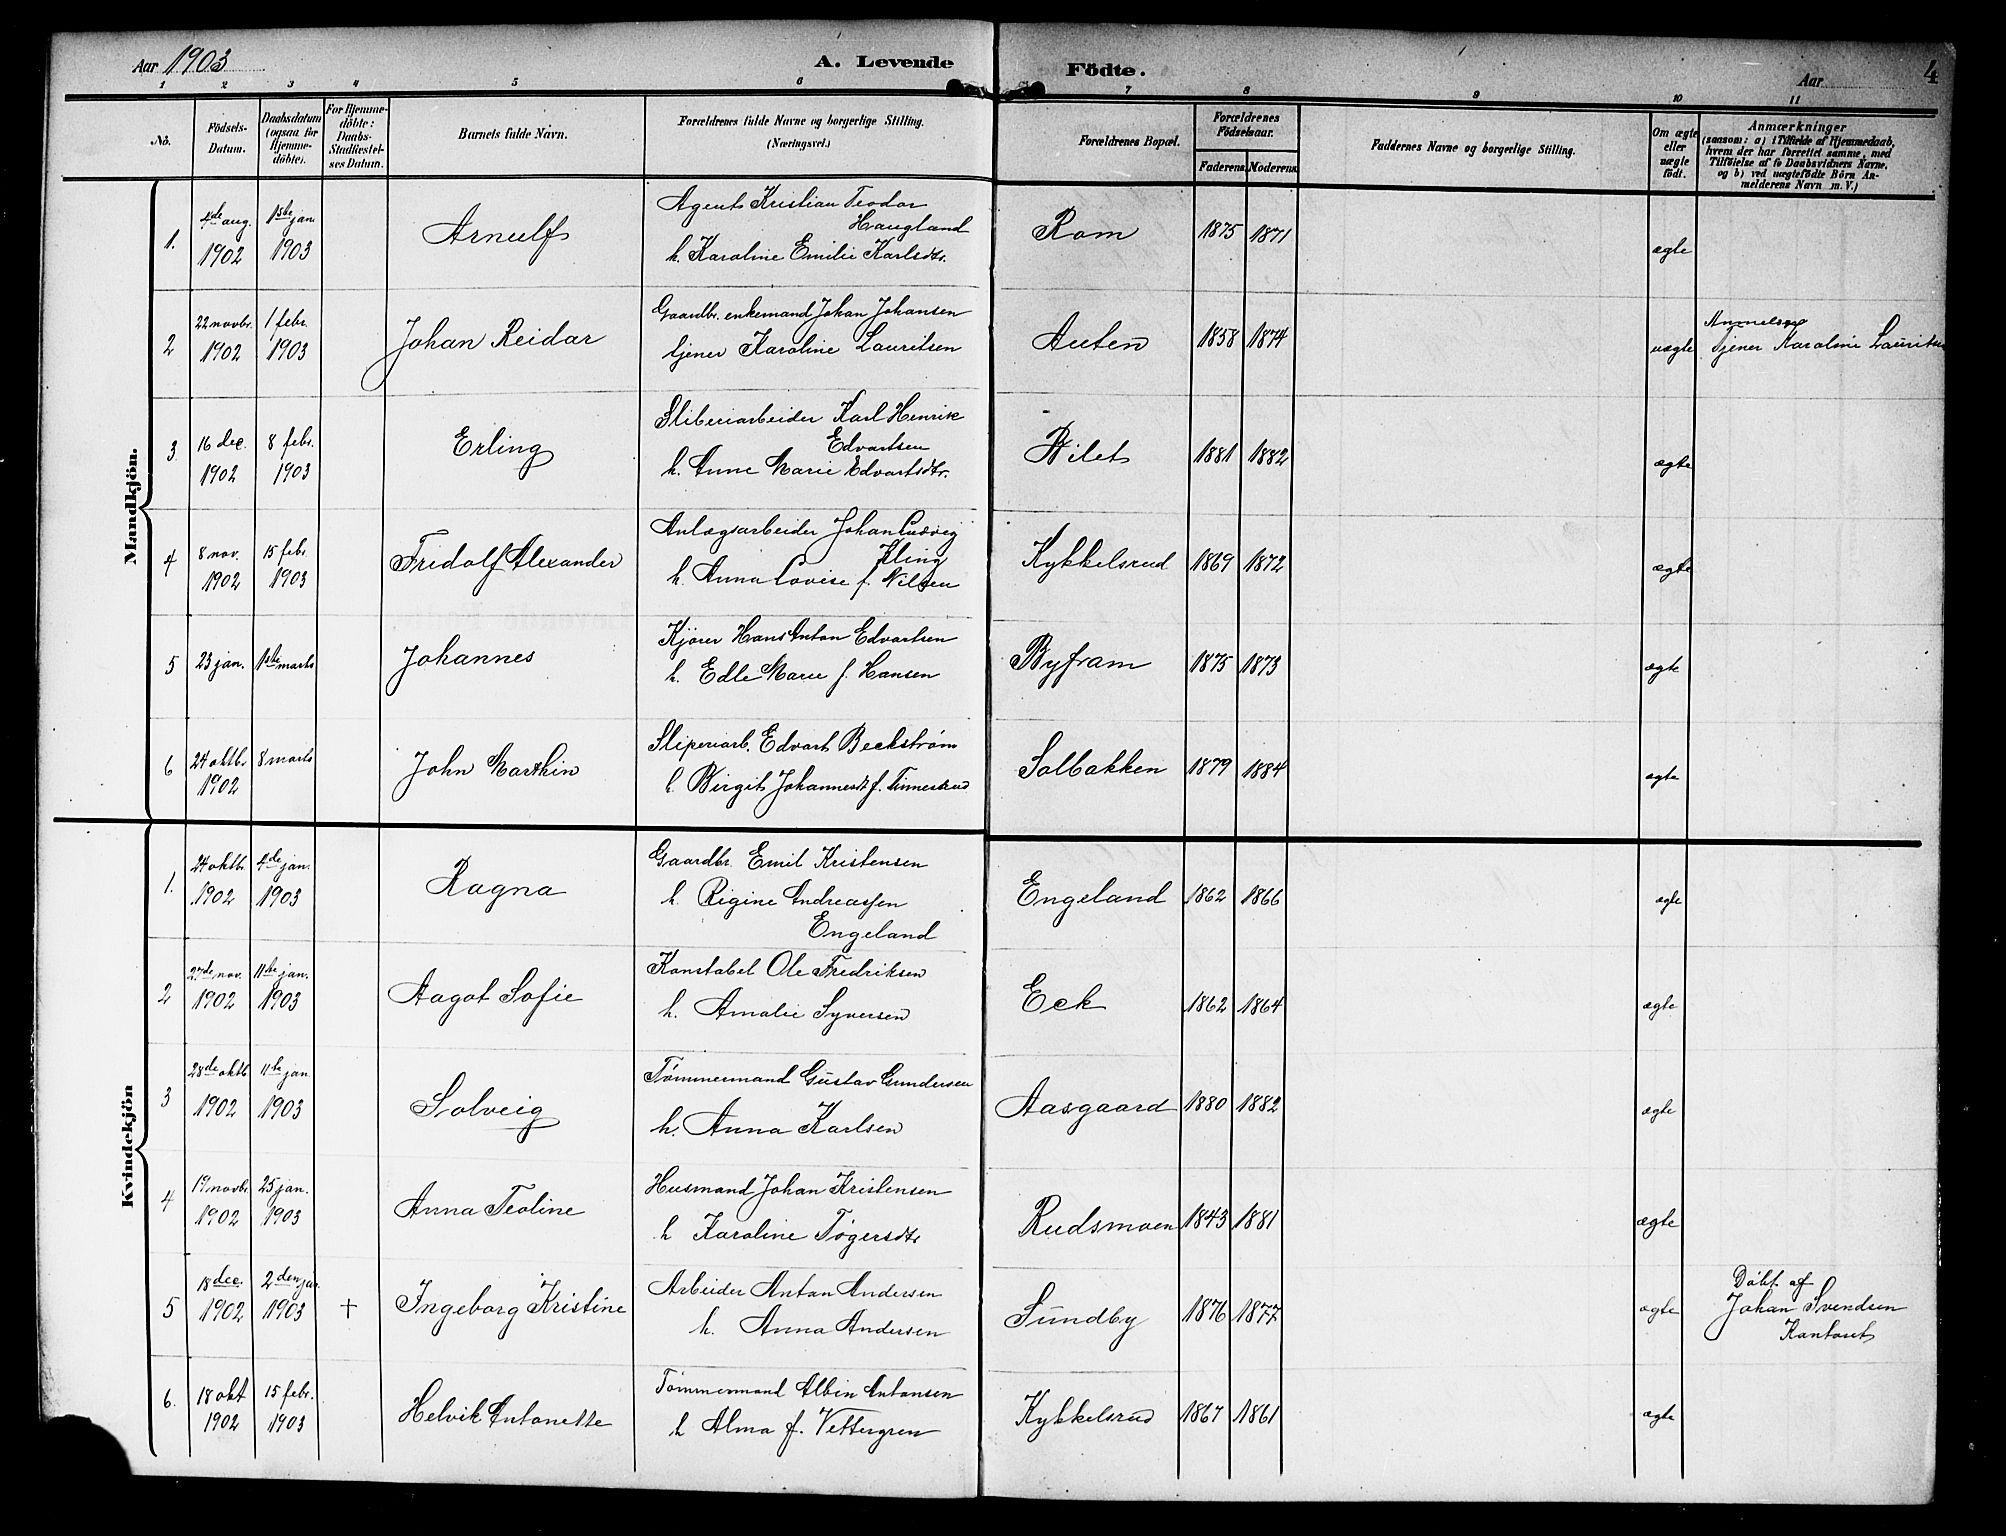 Aar 1903
A. Levende Födte.
Aar
4
1 2 3 4 5 6 7 8 9 10 11
No.
Födsels-Datum.
Daabsdatum (ogsaa for Hjemmedöbte).
For Hjemmedöbte: Daabs-Stadfæstelses Datum.
Barnets fulde Navn.
Forældrenes fulde Navne og borgerlige Stilling. (Næringsvei.)
Forældrenes Bopæl.
Forældrenes Födselsaar.
Faderens. Moderens.
Faddernes Navne og borgerlige Stilling.
Om ægte eller uægte födt.
Anmærkninger
(saasom: a) i Tilfælde af Hjemmedaab, hvem der har forrettet samme, med Tilföielse af to Daabsvidners Navne, og b) ved uægtefödte Börn Anmelderens Navn m. V.)
Mandkjön.
1. 4de aug. 1902 1ste jan. 1903 Arnulf Agent Kristian Teodor Haugland h. Karoline Emilie Karlsdtr. Rom 1875 1871 ægte
2 22 novbr. 1902 1 febr. 1903 Johan Reidar Gaardbr. enkemand Johan Johansen tjener Karoline Lauritsen Auten 1858 1874 uægte Tjener Karoline
3 16 dec. 1902 8 febr. 1903 Erling Sliberiarbeider Karl Henrik Edvartsen h. Anne Marie Edvartsdtr. Bilet 1881 1882 ægte
4 8 nov. 1902 15 febr. 1903 Fridolf Alexander Anlægsarbeider Johan Ludvig Kling h. Anna Lovise f. Nilsen Kykkelsrud 1869 1872 ægte
5 23 jan. 1ste marts Johannes Kjører Hans Anton Edvartsen h. Edle Marie f. Hansen Byfram 1875 1873 ægte
6 24 oktbr 1902 8 marts John Marthin Sliperiarb. Edvart Beckstrøm h. Birgit Johannesdt f. Tinnestrud Solbakken 1879 1884 ægte
Kvindekjön
1. 24 oktbr. 1902 4de jan. 1903 Ragna Gaardbr. Emil Kristensen h. Rigine Andreassen Engeland Engeland 1862 1866 ægte
2 27de nov. 1902 11te jan. 1903 Aagot Sofie Konstabel Ole Fredriksen h. Amalie Syversen Eck 1862 1864 ægte
3 28de oktb 1902 11te jan 1903 Solveig Tømmermand Gustav Gundersen h. Anna Karlsen Aasgaard 1880 1882 ægte
4 19 novbr 1902 25 jan. 1903 Anna Teoline Husmand Johan Kristensen h Karoline Tøgersdtr Rudsmoen 1843 1881 ægte
5 18 dec. 1902 2den jan. 1903 † Ingeborg Kristine Arbeider Anton Andersen h. Anna Andersen Sundby 1876 1877 ægte Døbt af Johan Svendsen
6. 18 okt 1902 15 febr. 1903 Helvik Antonette Tømmermand Albin Antonsen h Alma f. Vettergren Kykkelsrud 1867 1861 ægte